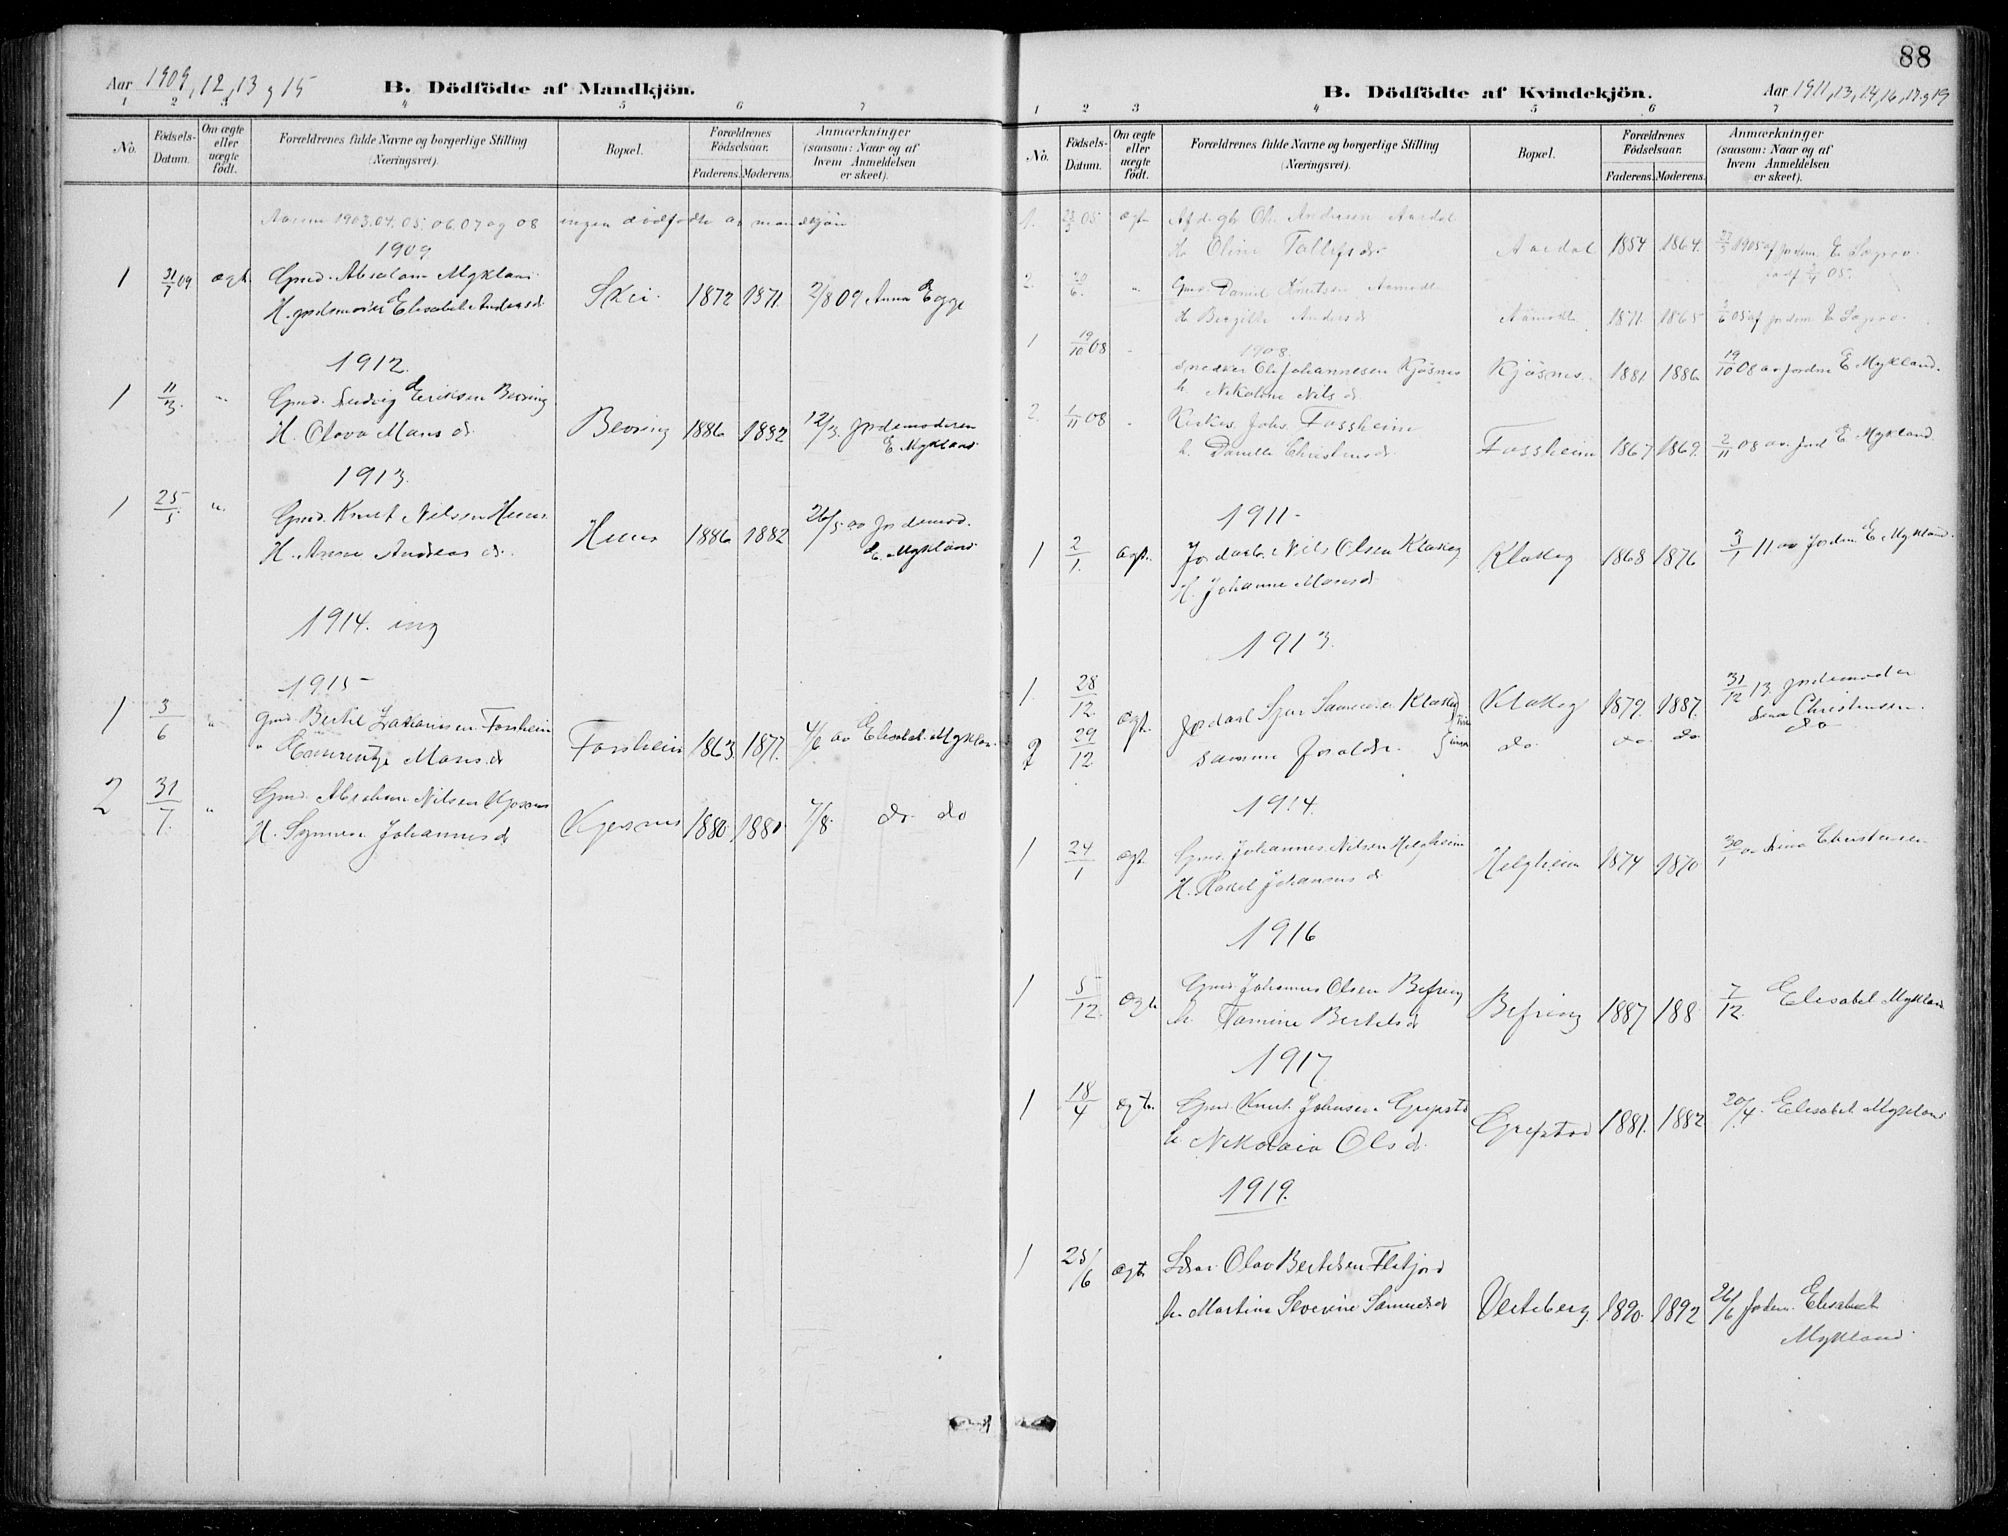 Aar 1909, 12, 13 og 15
B. Dödfödte af Mandkjön.
1 2 3 4 5 6 7
No.
Födsels-Datum.
Om ægte eller uægte födt.
Forældrenes fulde Navne og borgerlige Stilling (Næringsvei).
Bopæl.
Forældrenes Födselsaar.
Faderens. Moderens.
Anmærkninger (saasom: Naar og af hvem Anmeldelsen er skeet).
Aarene 1903, 04, 05, 06, 07 og 08 ingen dödfödte av mandkjön
1909
1 31/7 09 ægt. Gmd. Absalom Myklan
H. jordemoder Elisabet Andersd. Skei 1872 1871 2/8 09 Anna Egge
1912.
1 11/3. " Gmd. Ludvig Eriksen Bevring
H. Olava Mons d. Bevring 1886 1882 12/3. Jordemoderen
E. Mykland
1913.
1 25/5 " Gmd. Knut Nilsen Huus
H. Anne Andreas d. Huus 1886 1882 26/5 av Jordemod.
E. Mykland
1914. ing
1915
1 3/6 " Gmd. Bertel Zakariasen Fossheim
" Mons d. Fossheim 1863 1877. 4/6 av Elisabet Myklan
2 31/7. " Gmd. Abraham Nilsen Kjøsnes
H. Synneve Johannes d. Kjøsnes 1880 1880 7/8 do do
88
B. Dödfödte af Kvindekjön.
Aar 1911, 13, 14, 16, 17 og 19
1 2 3 4 5 6 7
No.
Födsels-Datum.
Om ægte eller uægte födt.
Forældrenes fulde Navne og borgerlige Stilling (Næringsvei).
Bopæl.
Forældrenes Födselsaar.
Faderens. Moderens.
Anmærkninger (saasom: Naar og af hvem Anmeldelsen er skeet).
1. 23/3 05 ægt. Ole Andersen Aardal
H. Oline Tollefsdr. Aardal 1854 1864. 27/3 1905 af jordem. E.
2. " Gmd. Daniel Knutsen Aamodt
H. Bergitte Andersd. Aamodt 1871 1865 05 af jordem. E.
1908.
1 19/10 08 " snedker Ole Johannesen Kjösnes
h. Nikoline Nils d. Kjösnes. 1881 1886 19/10 08 av jordm E Mykland.
2 1/11 08 " Kirkes. Johs. Fossheim
h. Danielle Christensd. Fossheim 1867 1869. 2/11 08 av jord E Mykland
1911
1 2/1. ægt. Jordarb. Nils Olsen Klakeg
H. Johanne Monsd. Klakeg 1868 1876 3/1 11 av jordm E Mykland.
1913.
1. 28/12. ægt. Klakeg Klakeg 1879. 1887. 31/12 13 jordemoder
Lina Christensen.
2 29/12 samme foraldr. do. do. do do
1914.
1 24/1 ægt Gmd. Johannes Nilsen Helgheim
H. Rakel Johannes d. Helgheim 1874 1870 30/1 av Lina Christensen
1916
1 5/12. ægte Gmd. Johannes Olsen Befring
h. Tomine Bertels d. Befring 1887 188 7/12. Elisabet Mykland
1917
1 18/4 ægte. Gmd. Knut Johnsen Grepstad
h Nikolaia Ols d. Grepstad 1881. 1882 20/4. Elisabet Mykland
1919.
1 25/6 ægte Lærar Olav Bertelsen Flatjord
h. Martina Severine Samuelsd Vesteberg. 1890. 1892 26/6 Jordm. Elisabet
Mykland.